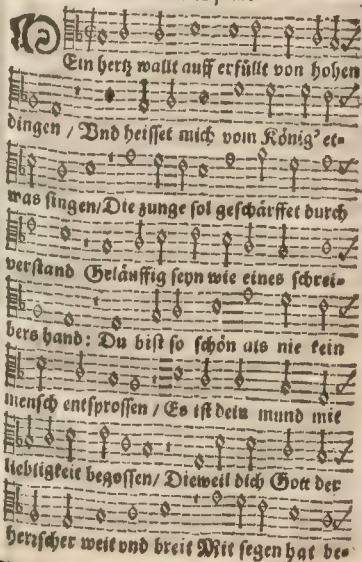 MEin hertz wallt auff erfüllt von hohen
dingen / Vnd heisset mich vom König' et=
was singen/Die zunge sol geschärffet durch
verstand Geläuffig seyn wie eines schrei=
bers hand: Du bist so schön als nie kein
mensch entsprossen / Es ist dein mund mit
liebligkeit begossen/ Dieweil dich Gott der
herrscher weit vnd breit Mit segen hat be=